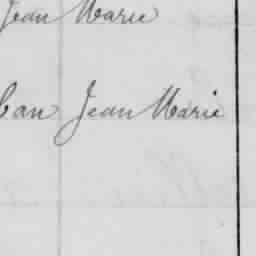 Jean Marie
Jean Marie